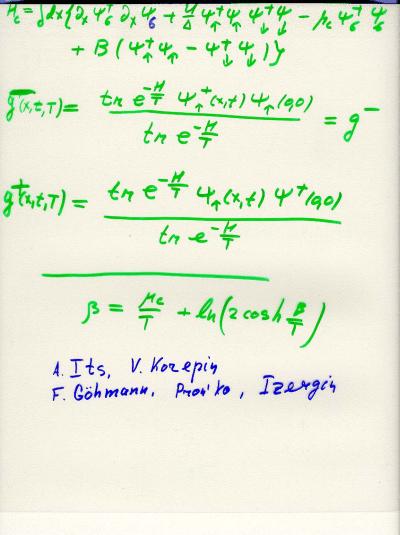 H_c = ∫dx{∂_x ψ_σ^+ ∂_x ψ_σ + U/Δ ψ_↑^+ ψ_↑ ψ_↓^+ ψ_↓ - μ_c ψ_σ^+ ψ_σ
+ B (ψ_↑^+ ψ_↑ - ψ_↓^+ ψ_↓)}
g^-(x,t,T) = tr e^{-H/T} ψ_↑^+(x,t) ψ_↑(0,0) / tr e^{-H/T} = g^-
g^+(x,t,T) = tr e^{-H/T} ψ_↑(x,t) ψ^+(0,0) / tr e^{-H/T}
β = μ_c/T + ln(2 cosh B/T)
A. Its, V. Korepin
F. Göhmann, Pron'ko, Izergin